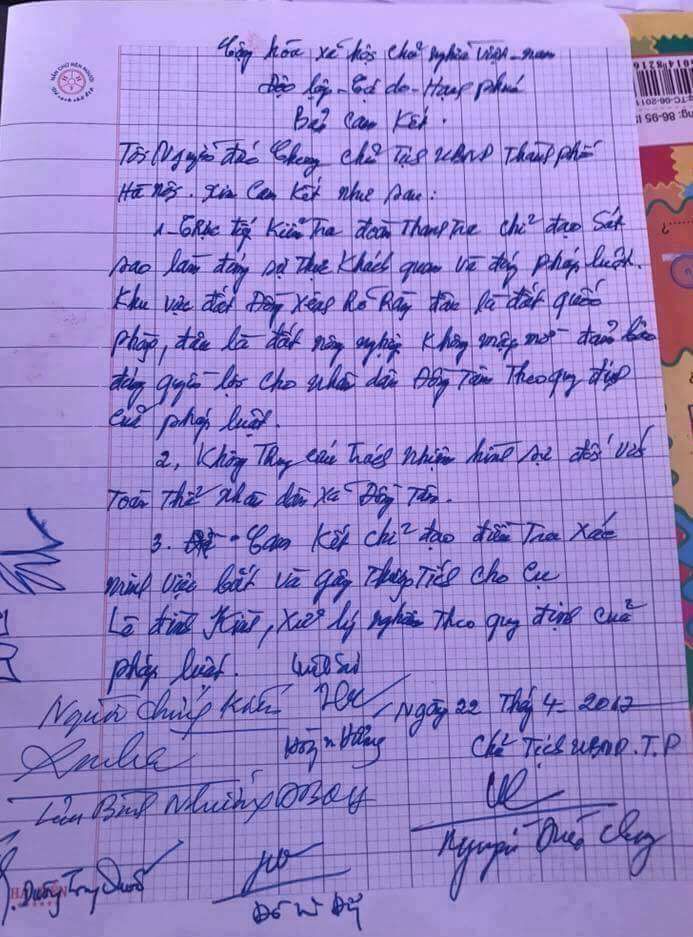 Cộng hòa xã hội chủ nghĩa Việt-nam
Độc lập - Tự do - Hạnh phúc
Bản cam kết.
Tôi Nguyễn đức Chung chủ tịch UBND Thành phố
Hà nội. xin cam kết như sau:
1- Trực tiếp kiểm tra đoàn Thanh tra chỉ đạo sát
sao làm đúng sự thật khách quan và đúng pháp luật.
khu vực đất Đồng Xênh Rõ Ràng đâu là đất quốc
phòng, đâu là đất nông nghiệp không mập mờ đảm bảo
đúng quyền lợi cho nhân dân Đồng Tâm Theo quy định
của pháp luật.
2, Không Truy cứu Trách nhiệm hình sự đối với
Toàn Thể nhân dân xã Đồng Tâm.
3. - Cam kết chỉ đạo điều Tra xác
minh việc bắt và gây Thương Tích cho cụ
Lê đình Kình, xử lý nghiêm Theo quy định của
pháp luật.
Người chứng kiến
Ngày 22 Tháng 4 - 2017
Chủ Tịch UBND.T.P
Lưu Bình Nhưỡng ĐBQH
Nguyễn Đức Chung
Dương Trung Quốc
Đỗ V Đ
BÀN CHỮ NÉN NGƯỜI
86-95 I
TC-06-201